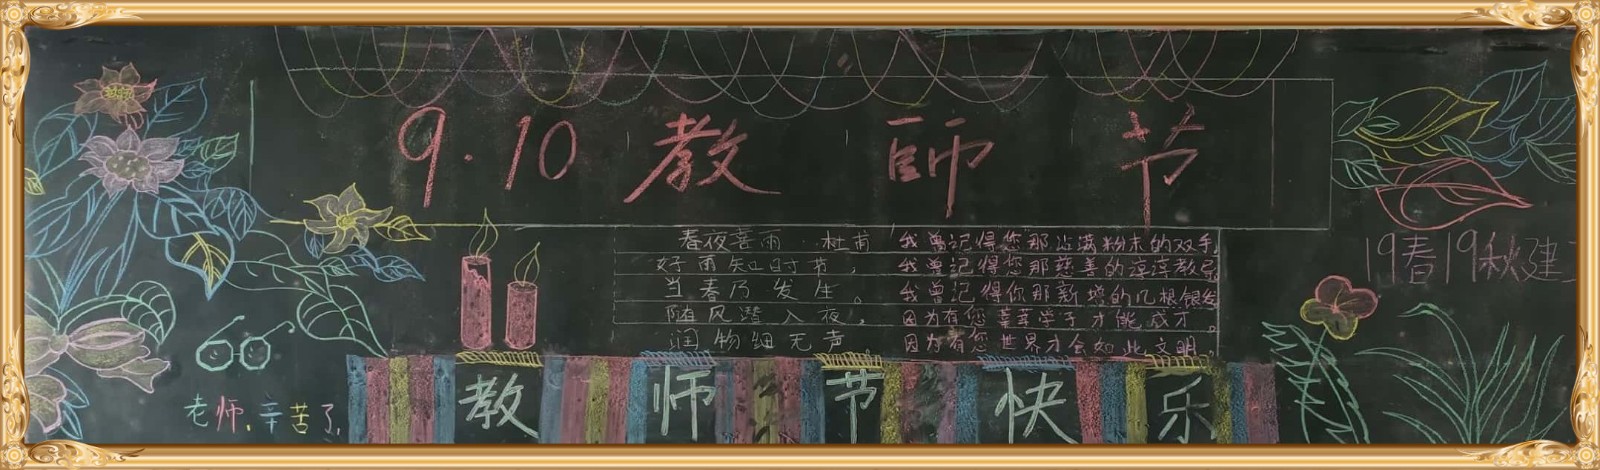 9.10 教師节
春夜喜雨··杜甫
好雨知时节，
当春乃发生。
随风潜入夜，
润物细无声
我曾记得您那沾满粉末的双手
我曾记得您那慈善的淳淳教导
我曾记得你那新增的几根银发
因为有您莘莘学子才能成才。
因为有您世界才会如此文明。
19春19秋建工
老师、辛苦了
教师节快乐